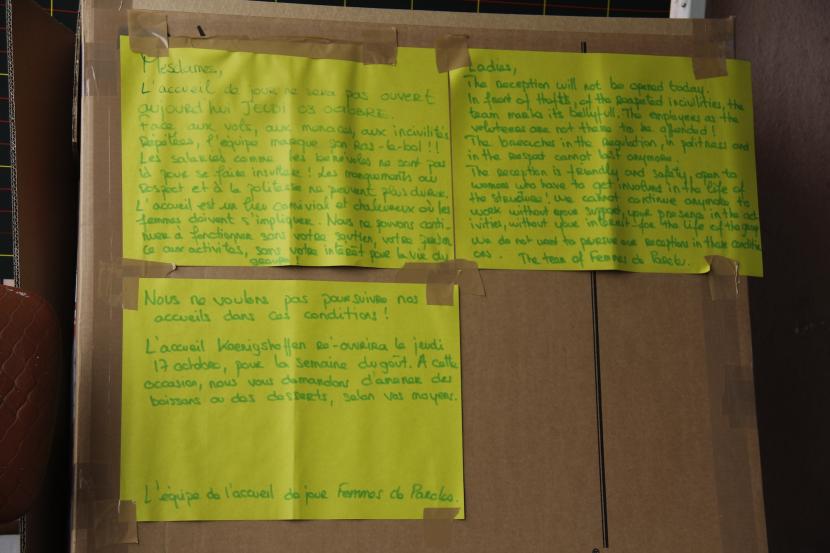 Mesdames,
L'accueil de jour ne sera pas ouvert
aujourd'hui JEUDI 03 OCTOBRE.
Face aux vols, aux menaces, aux incivilités
Répétées, l'équipe marque son Ras-le-bol !!
Les salariés comme les bénévoles ne sont pas
là pour se faire insulter ! Les manquements au
Respect et à la politesse ne peuvent plus durer.
L'accueil est un lieu convivial et chaleureux où les
femmes doivent s'impliquer. Nous ne pouvons conti-
nuer à fonctionner sans votre soutien, votre présen
ce aux activités, sans votre intérêt pour la vie du
groupe !
Ladies,
The Reception will not be opened today.
In front of thefts, of the Reapeted incivilities, the
team marks its bellyfull. The employees as the
volunteers are not there to be offended !
The breaches in the Regulation, in politness and
in the Respect cannot last anymore.
The Reception is friendly and safety, open to
women who have to get involved in the life of
the structure ! We cannot continue anymore to
work without your support, your presence in the act
ivities, without your interest for the life of the group
We do not want to pursue our Receptions in these conditi
ons. The team of Femmes de Paroles.
Nous ne voulons pas poursuivre nos
accueils dans ces conditions !
L'accueil Koenigshoffen ré-ouvrira le jeudi
17 octobre, pour la semaine du goût. A cette
occasion, nous vous demandons d'amener des
boissons ou des desserts, selon vos moyens.
L'équipe de l'accueil de jour Femmes de Paroles.